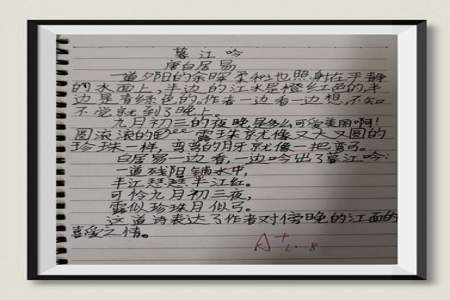 暮江吟
唐白居易
一道夕阳的余晖柔和地照射在平静
的水面上,半边的江水是橙红色的,半
边是青绿色的,作者一边看一边想,不知
不觉就到了晚上。
九月初三的夜晚是多么可爱美丽啊!
圆滚滚的露珠就像又大又圆的
珍珠一样,弯弯的月牙就像一把弯弓。
白居易一边看,一边吟出了暮江吟:
一道残阳铺水中,
半江瑟瑟半江红。
可怜九月初三夜,
露似珍珠月似弓。
这首诗表达了作者对傍晚的江面的
喜爱之情。
A+